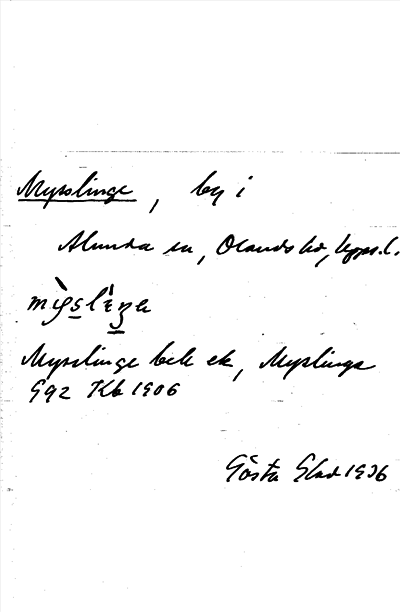 Mysslinge, by i
Alunda sn, Olands hd, Upps. l.
Mysslinge bek ek, Myslinga
Kb 1906
Gösta Elad 1936